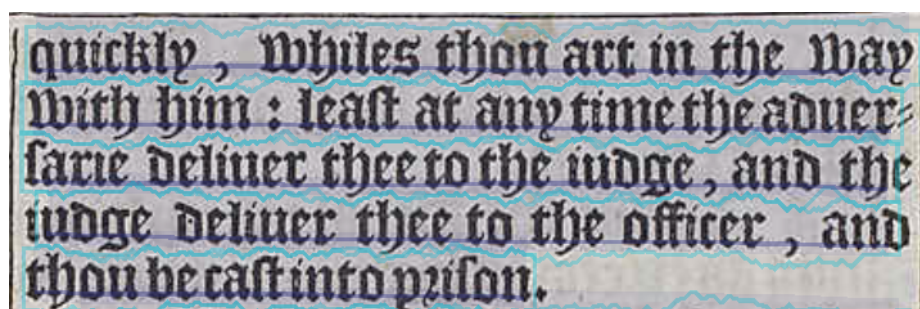 quickly, whiles thou art in the way
with him: leaſt at any time the aduer-
ſarie deliuer thee to the iudge, and the
iudge deliuer thee to the officer, and
thou be caſt into priſon.